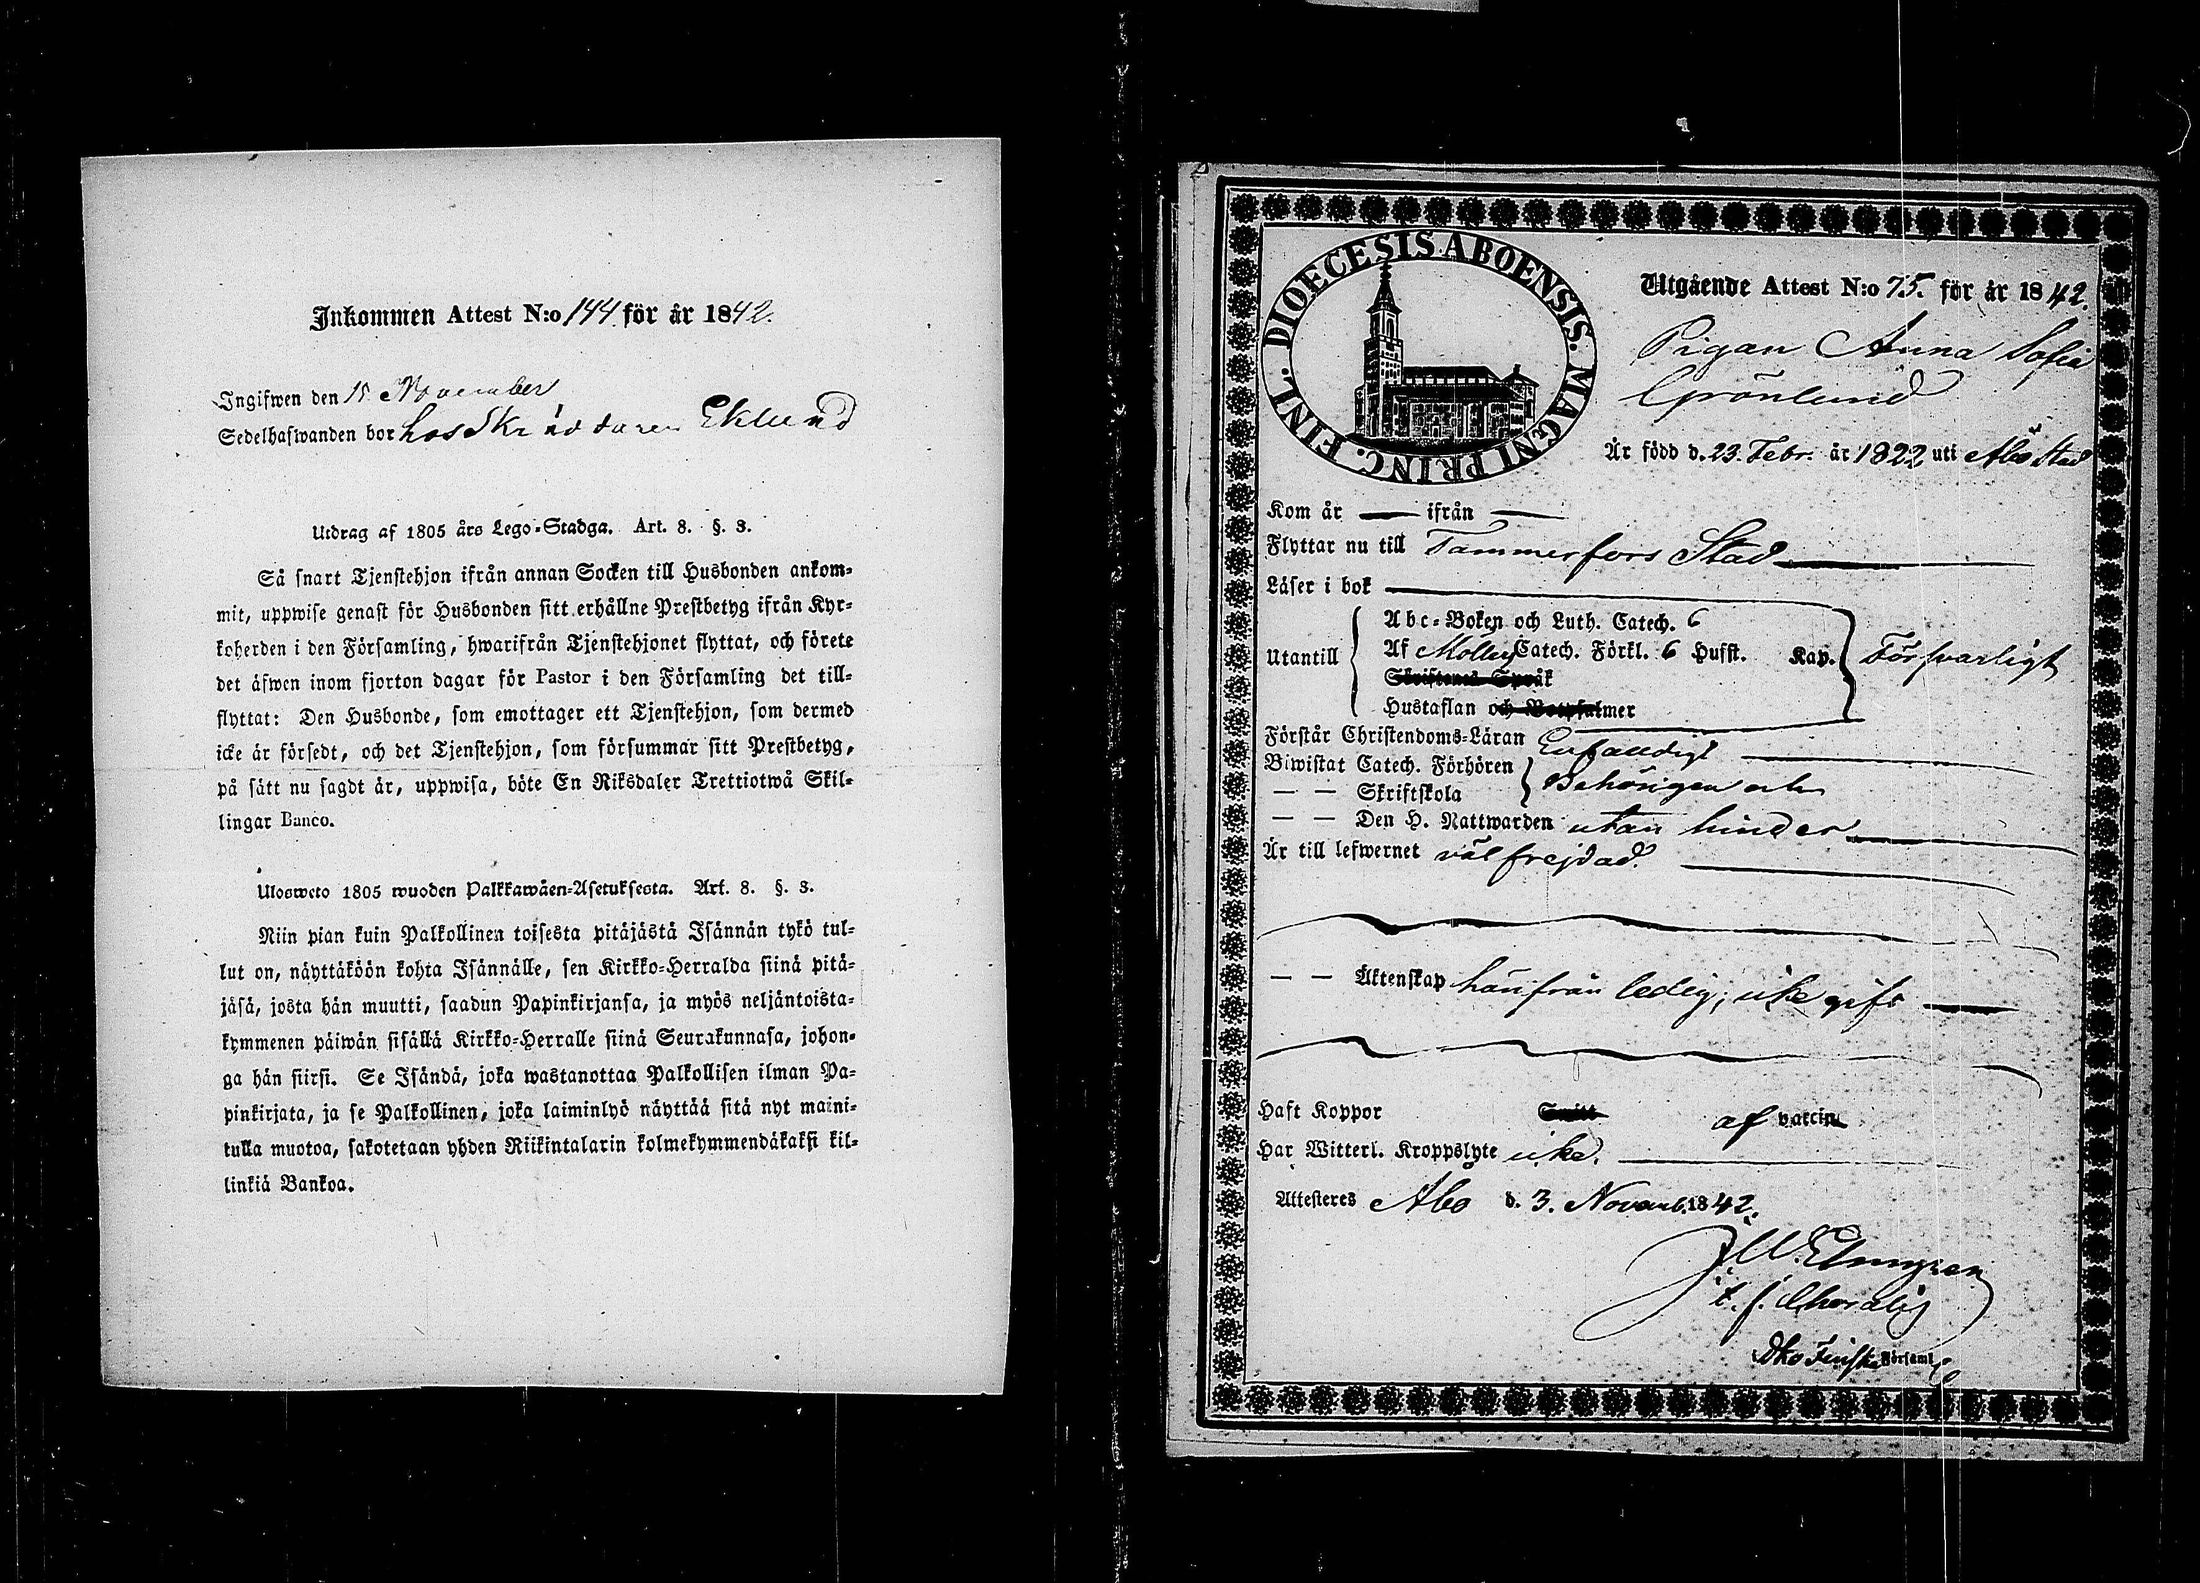 Inkommen Attest N:o 144 för år 1842.
Ingifwen den 15 November
Sedelhafwanden bor hos Skräddaren Eklund
Utdrag af 1805 års Lego-Stadga. Art. 8. §. 3.
Så snart Tjenstehjon ifrån annan Socken till Husbonden ankom-
mit, uppwise genast för Husbonden sitt erhållne Prestbetyg ifrån Kyr-
koherden i den Församling, hwarifrån Tjenstehjonet flyttat, och förete
det äfwen inom fjorton dagar för Pastor i den Församling det till-
flyttat: Den Husbonde, som emottager ett Tjenstehjon, som dermed
icke är försedt, och det Tjenstehjon, som försummar sitt Prestbetyg,
på sätt nu sagdt är, uppwisa, böte En Riksdaler Trettiotwå Skil-
lingar Banco.
Ulosweto 1805 wuoden Palkkawäen-Asetuksesta. Art. 8. §. 3.
Niin pian kuin Palkollinen toisesta pitäjästä Isännän tykö tul-
lut on, näyttäköön kohta Isännälle, sen Kirkko-Herralda siinä pitä-
jäsä, josta hän muutti, saadun Papinkirjansa, ja myös neljäntoista-
kymmenen päiwän sisällä Kirkko-Herralle siinä Seurakunnasa, johon-
ga hän siirsi. Se Isändä, joka wastanottaa Palkollisen ilman Pa-
pinkirjata, ja se Palkollinen, joka laiminlyö näyttää sitä nyt maini-
tulla muotoa, sakotetaan yhden Riikintalarin kolmekymmendäkaksi kil-
linkiä Bankoa.
DIOECESIS ABOENSIS. MAGNI PRINC. FINL.
Utgående Attest N:o 75. för år 1842.
Pigan Anna Sofia
Grönlund
Är född d. 23. Febr. år 1822 uti Åbo Stad
Kom år — ifrån —
Flyttar nu till Tammerfors Stad
Läser i bok
Utantill
Abc-Boken och Luth. Catech. 6
Af Möllers Catech. Förkl. 6 Hufst. Kap. Försvarligt
Skriftenes Språk
Hustaflan och Botpsalmer
Förstår Christendoms-Läran Enfaldigt
Biwistat Catech. Förhören
— — Skriftskola Behörigen och
— — Den H. Nattwarden utan hinder
Är till lefwernet väl frejdad.
— — Äktenskap härifrån ledig, icke gift
Haft Koppor Smitt af vaccin
Har Witterl. Kroppslyte icke.
Attesteres Åbo d. 3. Novemb. 1842.